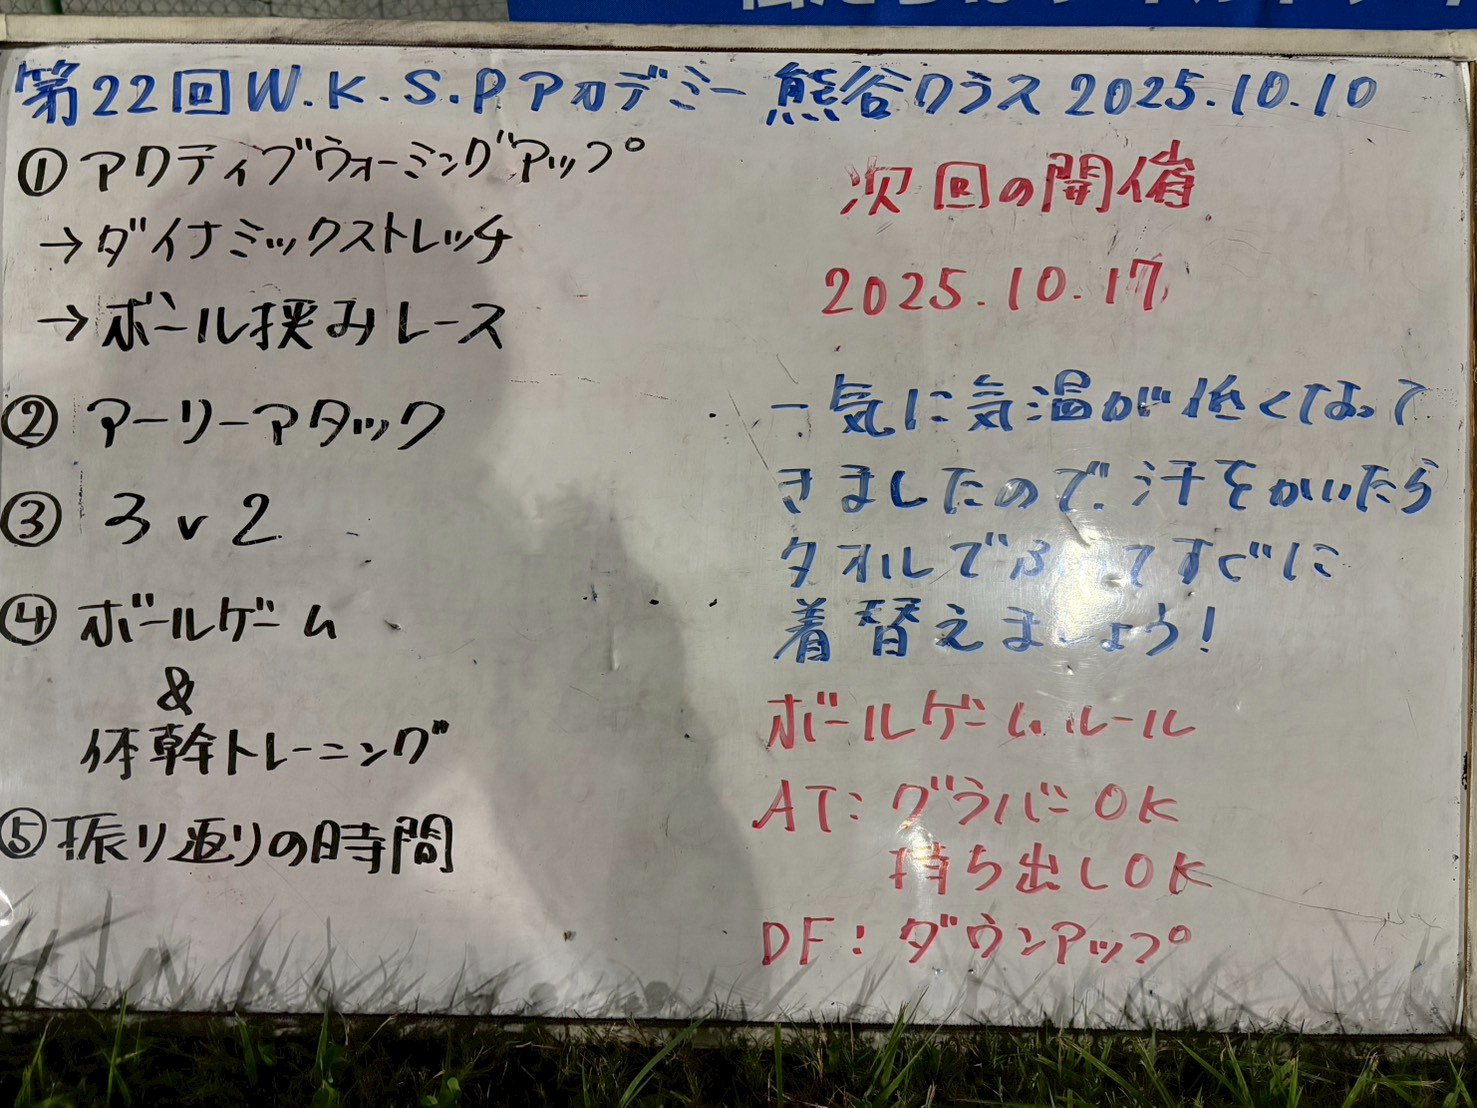 第22回W.K.S.Pアカデミー 熊谷クラス 2025.10.10
①アクティブウォーミングアップ
→ダイナミックストレッチ
→ボール挟みレース
②アーリーアタック
③ 3v2
④ボールゲーム
&
体幹トレーニング
⑤振り返りの時間
次回の開催
2025.10.17
一気に気温が低くなって
きましたので、汗をかいたら
タオルでふいてすぐに
着替えましょう!
ボールゲームルール
AT:グラバーOK
持ち出しOK
DF:ダウンアップ